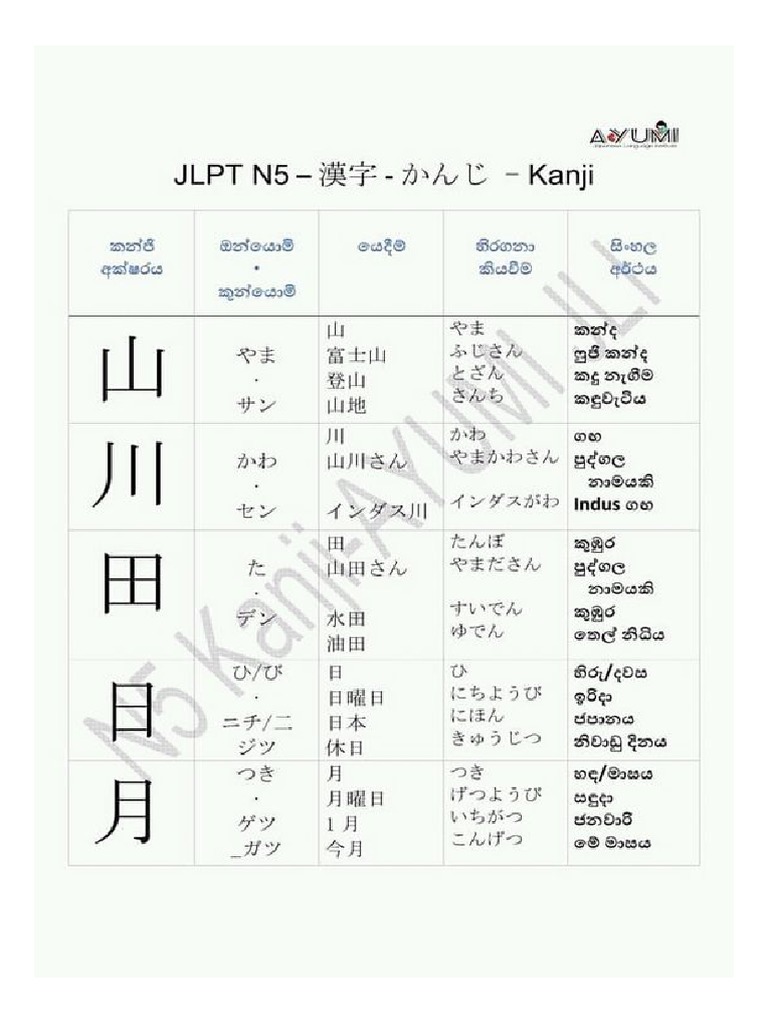 AYUMI
JLPT N5 – 漢字 - かんじ – Kanji
කන්ජි
අක්ෂරය
ඔන්යොමි
•
කුන්යොමි
යෙදීම්
හිරගනා
කියවීම
සිංහල
අර්ථය
山
やま
・
サン
山
富士山
登山
山地
やま
ふじさん
とざん
さんち
කන්ද
ෆුජි කන්ද
කදු නැගීම
කඳුවැටිය
川
かわ
・
セン
川
山川さん
インダス川
かわ
やまかわさん
インダスがわ
ගඟ
පුද්ගල
නාමයකි
Indus ගඟ
田
た
・
デン
田
山田さん
水田
油田
たんぼ
やまださん
すいでん
ゆでん
කුඹුර
පුද්ගල
නාමයකි
කුඹුර
තෙල් නිධිය
日
ひ/び
・
ニチ/ニ
ジツ
日
日曜日
日本
休日
ひ
にちようび
にほん
きゅうじつ
හිරු/දවස
ඉරිදා
ජපානය
නිවාඩු දිනය
月
つき
・
ゲツ
_ガツ
月
月曜日
1 月
今月
つき
げつようび
いちがつ
こんげつ
හඳ/මාසය
සඳුදා
ජනවාරි
මේ මාසය
N5 Kanji-AYUMI JLI